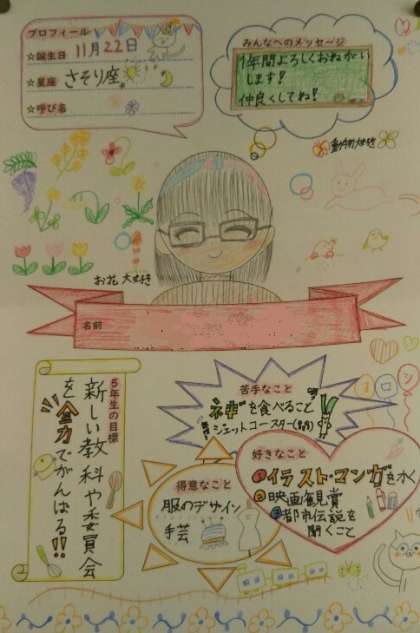 プロフィール
☆誕生日 11月22日
☆星座 さそり座
☆呼び名
みんなへのメッセージ
1年間よろしくおねがい
します!
仲良くしてね!
お花 大好き
名前
5年生の目標
新しい教科や委員会
を全力でがんばる!!
苦手なこと
ネギを食べること
ジェットコースター
得意なこと
服のデザイン
手芸
好きなこと
①イラスト・マンガをかく
②映画観賞
③都市伝説を
聞くこと